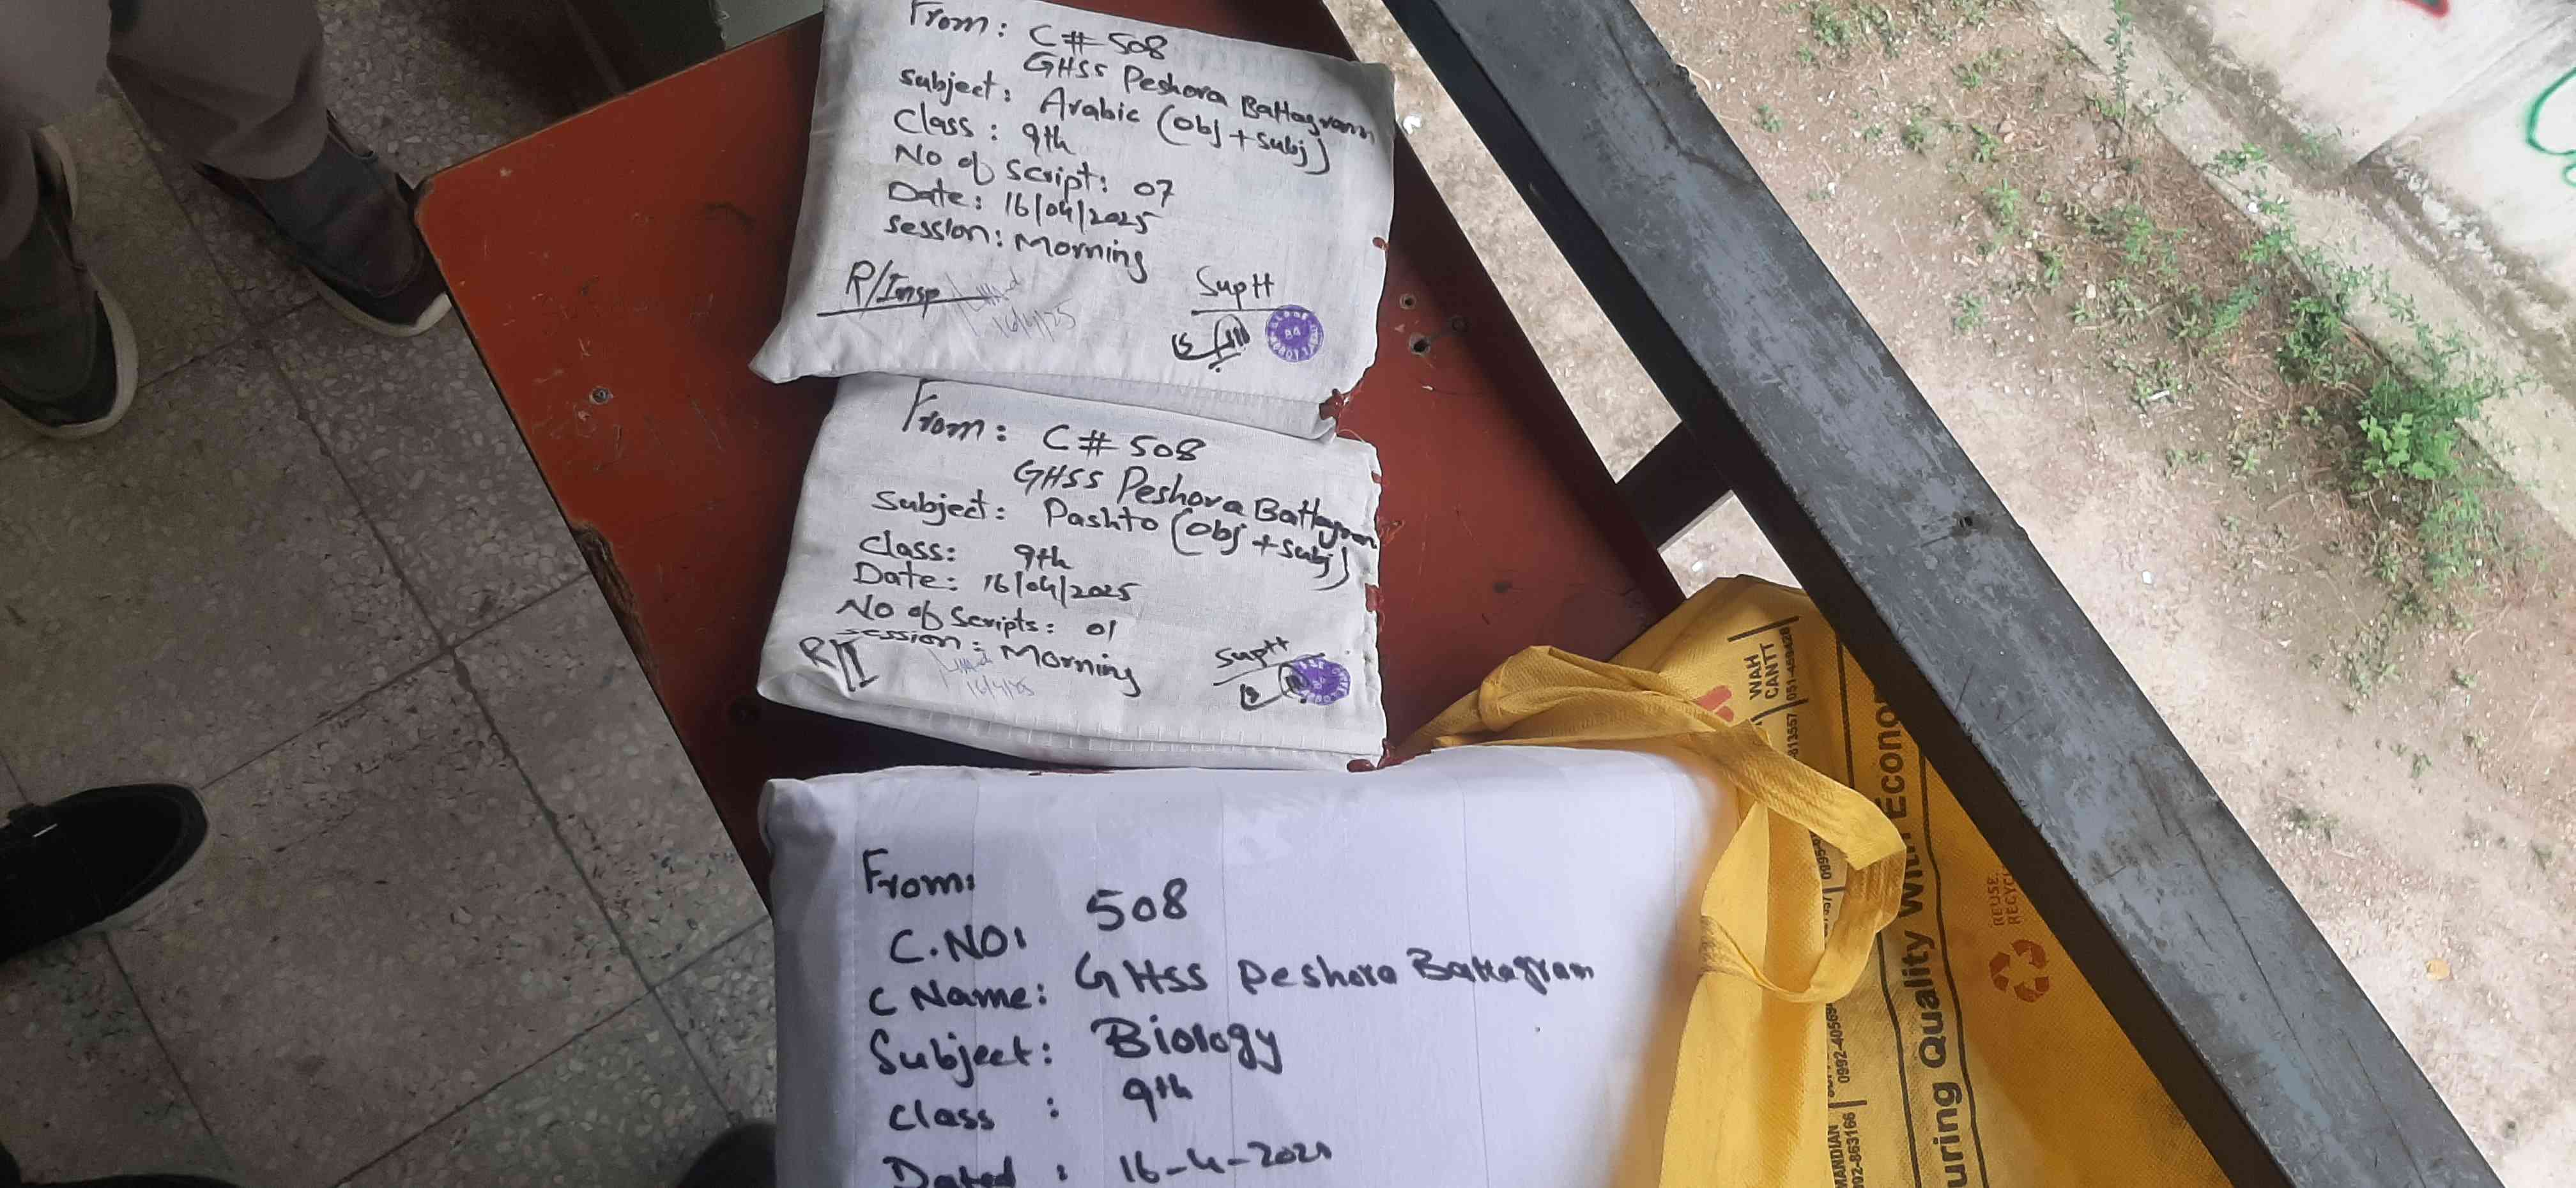 From: C# 508
GHSS Peshora Battagram
Subject: Arabic (Obj + Subj)
Class: 9th
No of script: 07
Date: 16/04/2025
Session: Morning
R/Insp
16/4/25
Suptt
From: C# 508
GHSS Peshora Battagram
Subject: Pashto (Obj + Subj)
Class: 9th
Date: 16/04/2025
No of Scripts: 01
Session: Morning
R/I
16/4/25
Suptt
From:
C.NO: 508
C Name: GHSS Peshora Battagram
Subject: Biology
Class : 9th
Dated : 16-4-2025
WAH
CANTT
813557
051-
0992-40569
MANDIAN
REUSE
RECYC
uring Quality With Econo